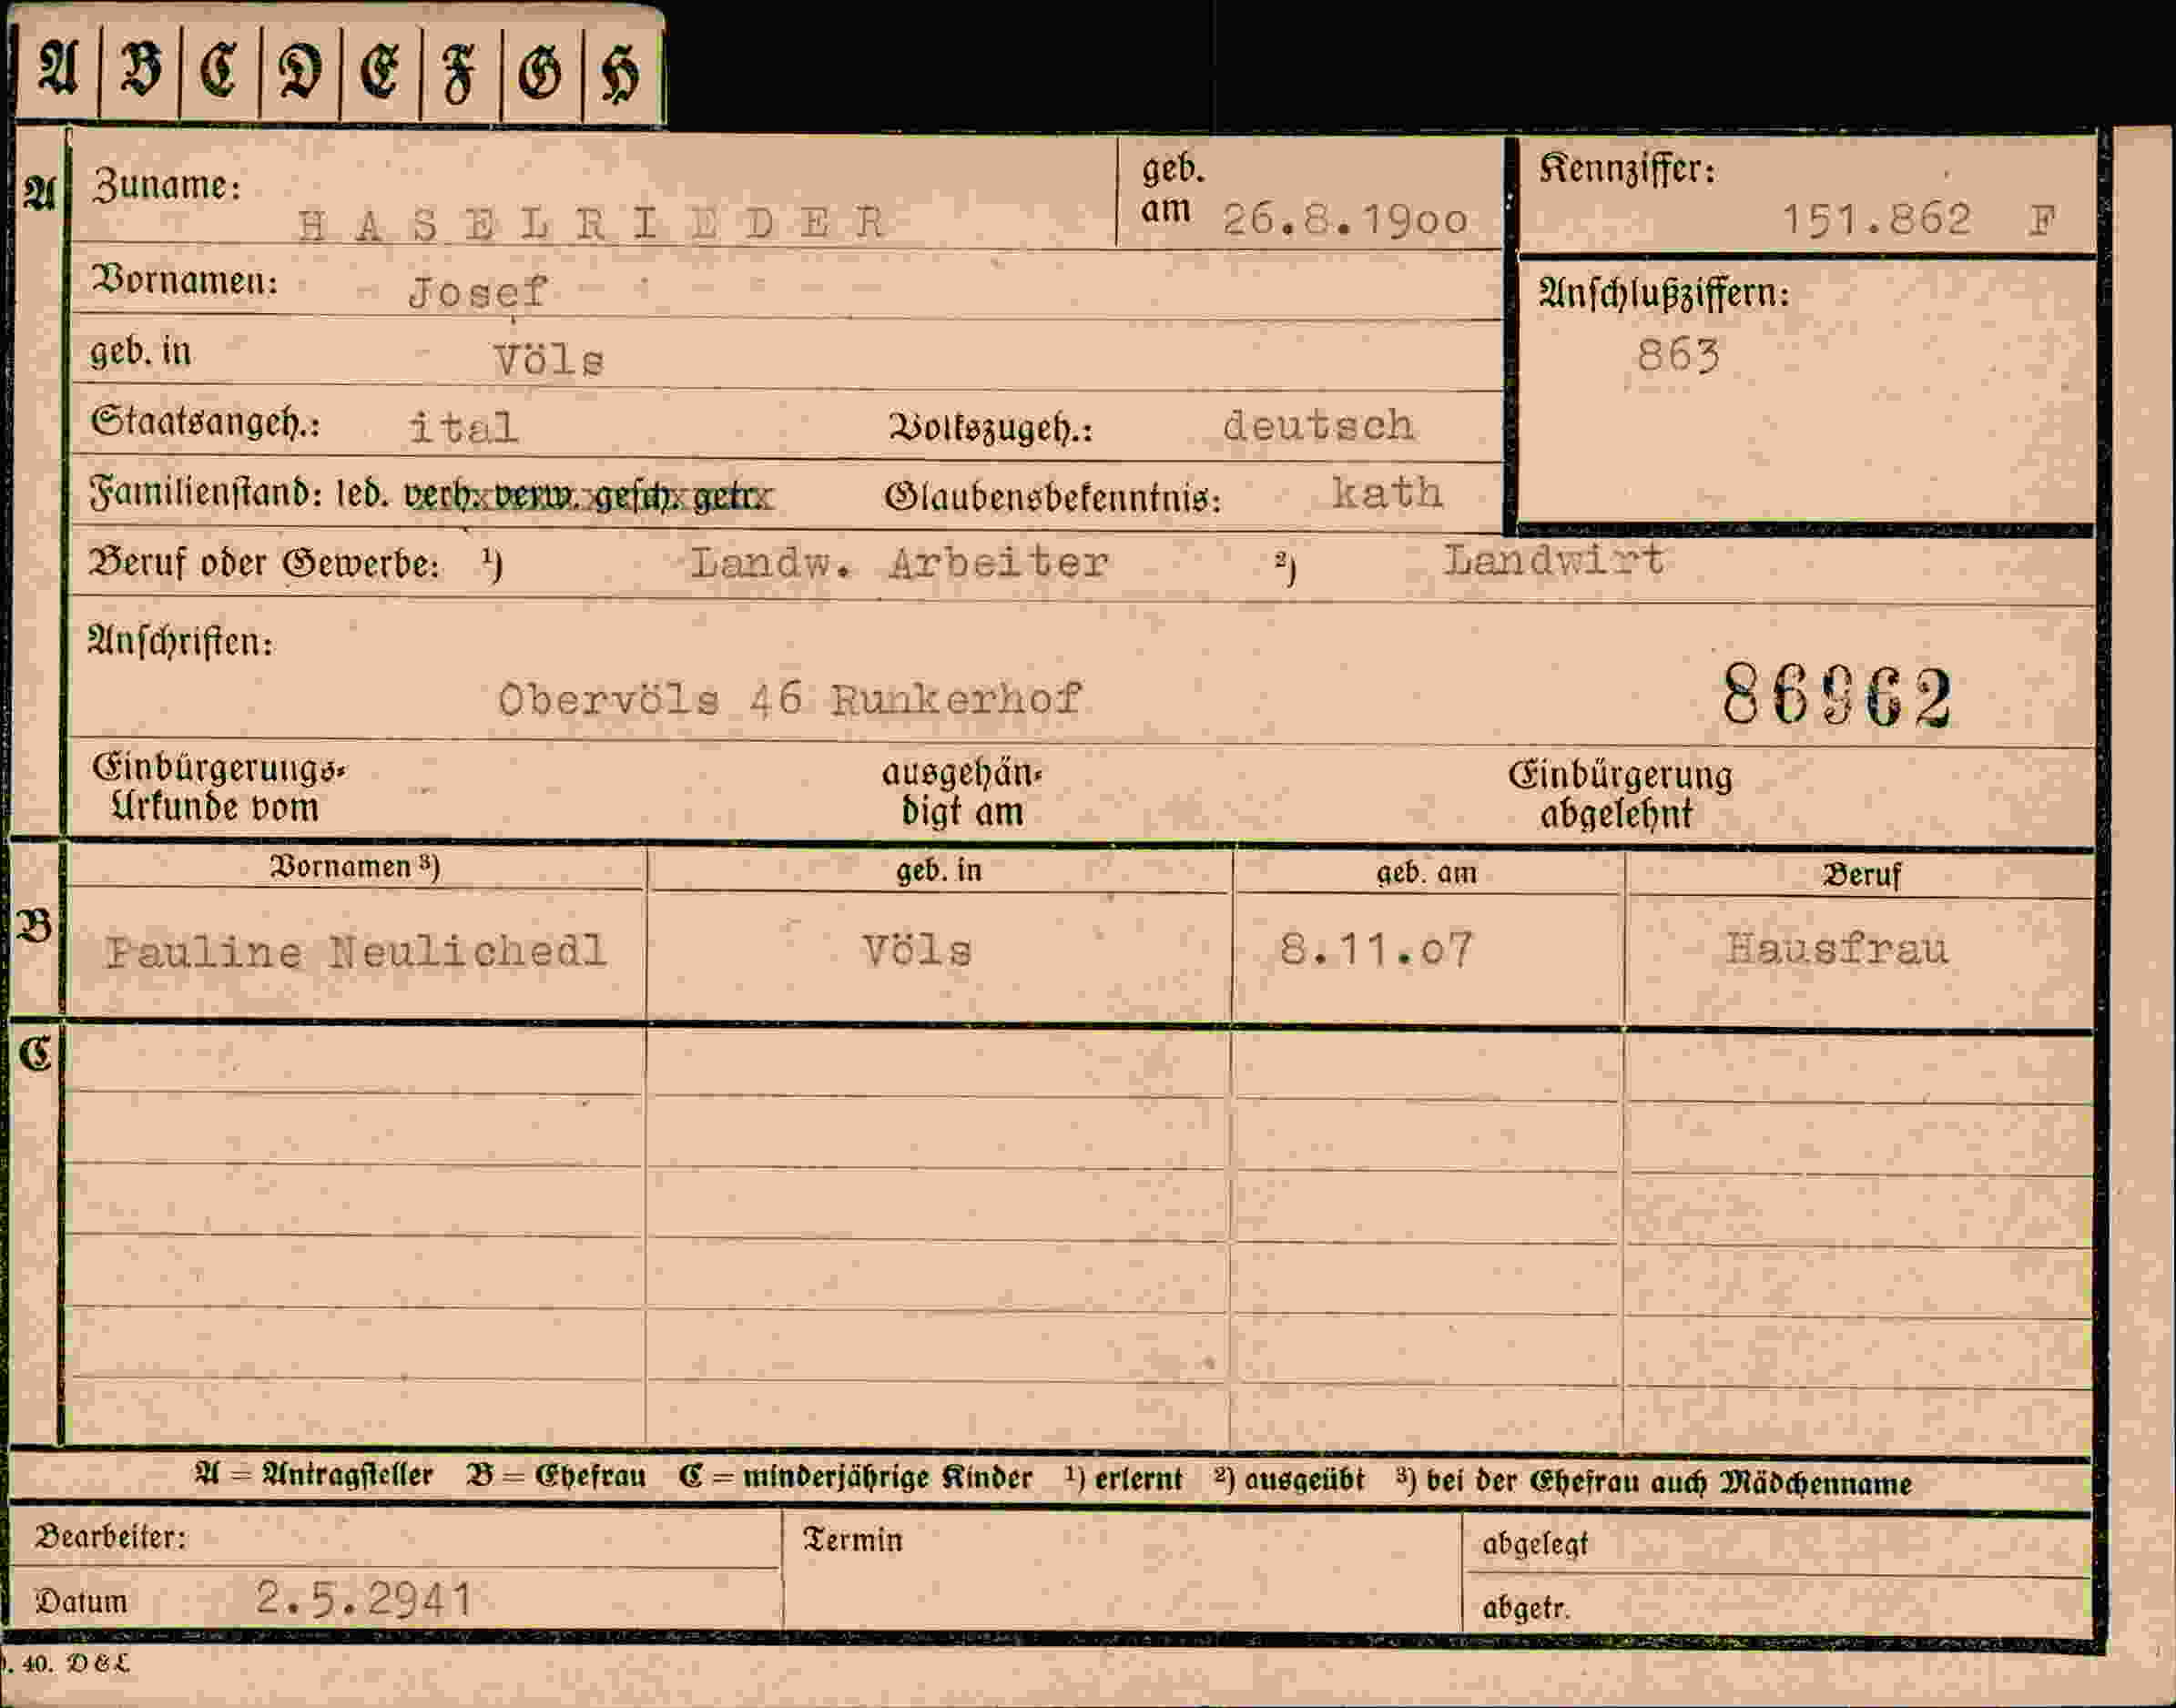 A B C D E F G H
A
Zuname: HASELRIEDER
geb. am 26.8.1900
Kennziffer: 151.862 F
Vornamen: Josef
Anschlußziffern:
863
geb. in Völs
Staatsangeh.: ital Volkszugeh.: deutsch
Familienstand: led. verh. verw. gesch. getr. Glaubensbekenntnis: kath
Beruf oder Gewerbe: ¹) Landw. Arbeiter ²) Landwirt
Anschriften:
Obervöls 46 Runkerhof 86962
Einbürgerungs-
Urkunde vom
ausgehän-
digt am
Einbürgerung
abgelehnt
Vornamen ³) geb. in geb. am Beruf
B
Pauline Neulichedl Völs 8.11.07 Hausfrau
C
A = Antragsteller B = Ehefrau C = minderjährige Kinder ¹) erlernt ²) ausgeübt ³) bei der Ehefrau auch Mädchenname
Bearbeiter: Termin abgelegt
Datum 2.5.2941 abgetr.
. 40. D & L